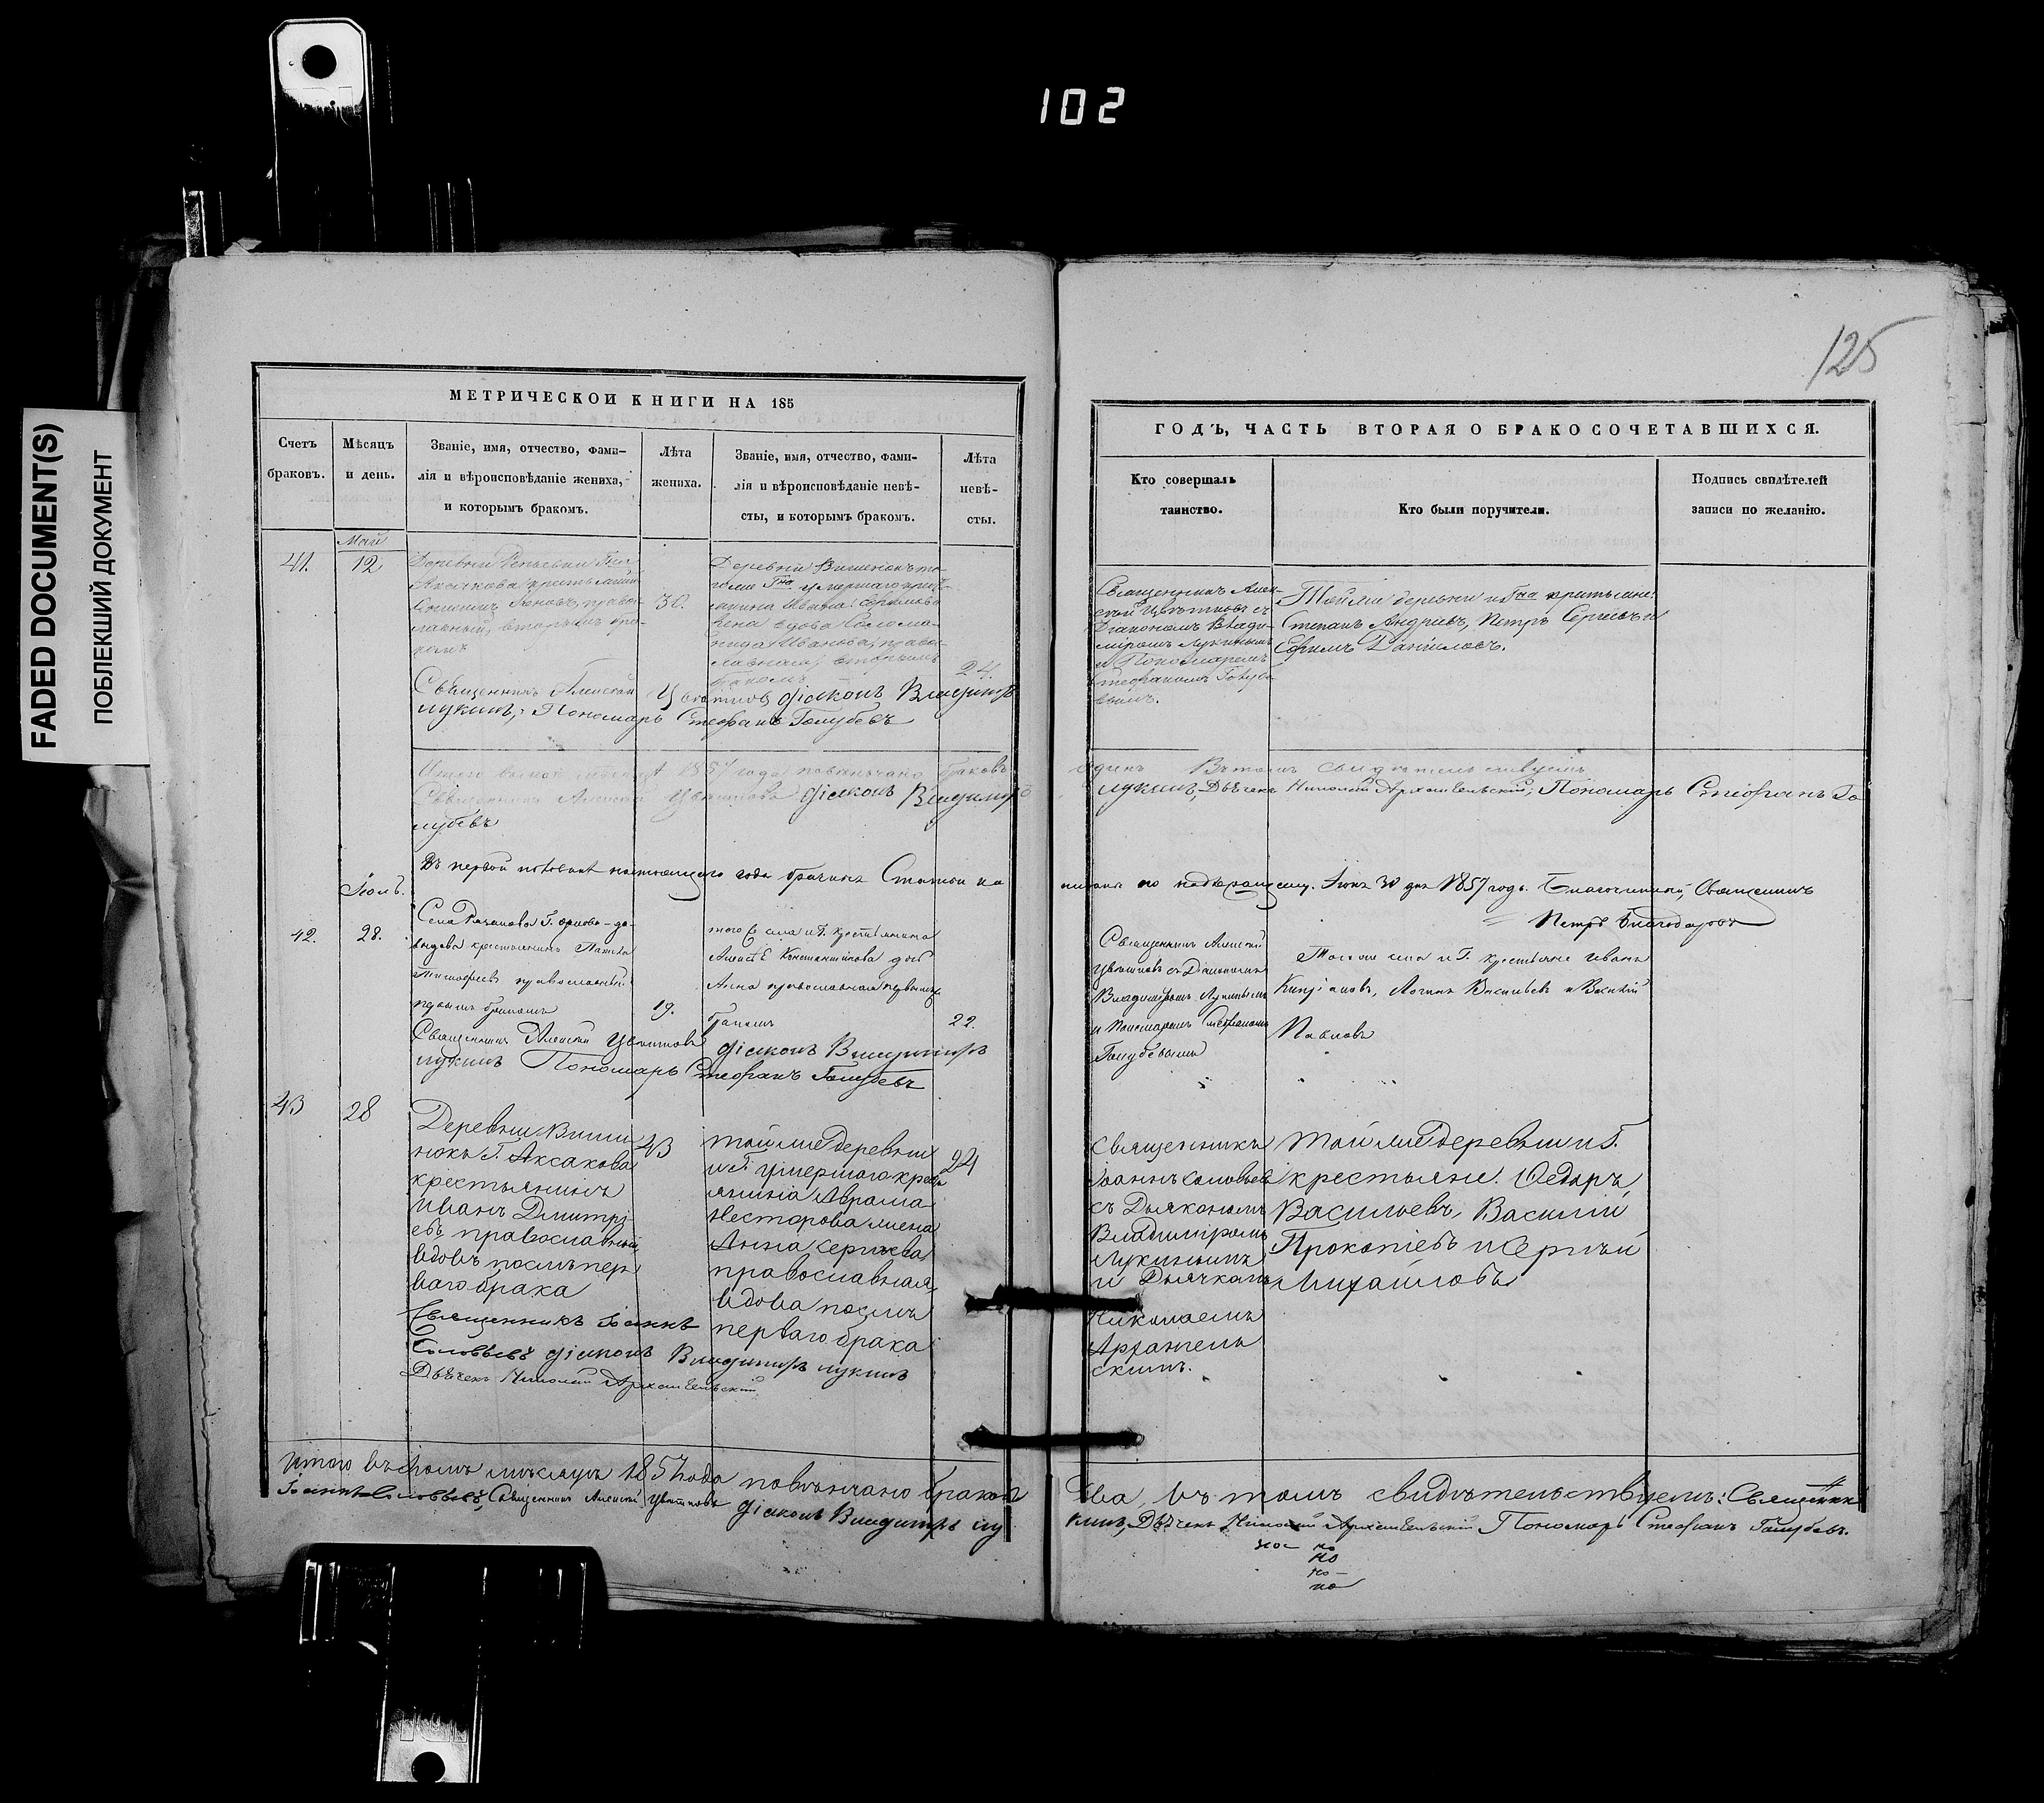 102
FADED DOCUMENT(S)
ПОБЛЕКШИЙ ДОКУМЕНТ
125
МЕТРИЧЕСКОЙ КНИГИ НА 185
Счетъ браковъ.
Мѣсяцъ и день.
Званіе, имя, отчество, фами-
лія и вѣроисповѣданіе жениха,
и которымъ бракомъ.
Лѣта жениха.
Званіе, имя, отчество, фами-
лія и вѣроисповѣданіе невѣ-
сты, и которымъ бракомъ.
Лѣта невѣ-
сты.
ГОДЪ, ЧАСТЬ ВТОРАЯ О БРАКОСОЧЕТАВШИХСЯ.
Кто совершалъ
таинство.
Кто были поручители.
Подпись свидѣтелей
записи по желанію.
Май
41.
12
Деревни
Аксакова
славный, вторымъ бра-
комъ
30.
Деревни Вишенокъ то-
гоже Гна умершаго
Ивана
жена вдова
Иванова, право-
славная, вторымъ
бракомъ
24.
Священникъ Алек-
сѣй Цвѣтковъ съ
Діакономъ Влади-
міромъ Лукинымъ
и Пономаремъ
Стефаномъ Голубе-
вымъ.
Тойже деревни и Гна крестьяне:
Степанъ Андріевъ, Петръ Сергіевъ и
Ефимъ Даниловъ.
Священникъ Алексѣй Цвѣтковъ діаконъ Владиміръ
Лукинъ, Пономарь Стефанъ Голубевъ
Итого въ маѣ мѣсяцѣ 1857 года повѣнчано браковъ
одинъ Въ томъ свидѣтельствуемъ
Священникъ Алексѣй Цвѣтковъ діаконъ Владиміръ
Лукинъ, Дьячекъ Николай Архангельскій, Пономарь Стефанъ Го
лубевъ
Въ первой половинѣ настоящаго года брачныя Статьи
по надлежащему. Іюня 30 дня 1857 года. Благочинный, Священникъ
Петръ Благодаровъ
Іюль.
42.
28.
Села
крестьянинъ
Тимофеевъ православный
первымъ бракомъ
19.
того Села и Г. крестьянина
Алексѣя Константинова дочь
Анна православная первымъ
бракомъ
22.
Священникъ Алексѣй
Цвѣтковъ съ Діакономъ
Владиміромъ Лукинымъ
и Пономаремъ Стефаномъ
Голубевымъ
Тогоже села и Г. крестьяне Иванъ
Кипріановъ, Логинъ Васильевъ и Василій
Павловъ
Священникъ Алексѣй Цвѣтковъ діаконъ Владиміръ
Лукинъ Пономарь Стефанъ Голубевъ
43
28
Деревни Више
нокъ Г. Аксакова
крестьянинъ
Иванъ Дмитрі-
евъ православный
вдовъ послѣ пер
ваго брака
43
тойже деревни
и Г. умершаго крест
янина Аврама
Нестерова жена
Анна Сергѣева
православная
вдова послѣ
перваго брака
24
Священникъ
Іоаннъ Соловьевъ
съ Дьякономъ
Владиміромъ
Лукинымъ
и Дьячкомъ
Николаемъ
Архангель
скимъ.
тойже деревни и Г.
крестьяне. Ѳедоръ
Васильевъ, Василій
Прокопіевъ и Сергѣй
Михайловъ
Священникъ Іоаннъ
Соловьевъ діаконъ Владиміръ Лукинъ
Дьячекъ Николай Архангельскій
Итого въ Іюлѣ мѣсяцѣ 1857 года повѣнчано браковъ
два, въ томъ свидѣтельствуемъ: Священник
Іоаннъ Соловьевъ, Священникъ Алексѣй Цвѣтковъ діаконъ Владиміръ Лу
кинъ, Дьячекъ Николай Архангельскій Пономарь Стефанъ Голубевъ.